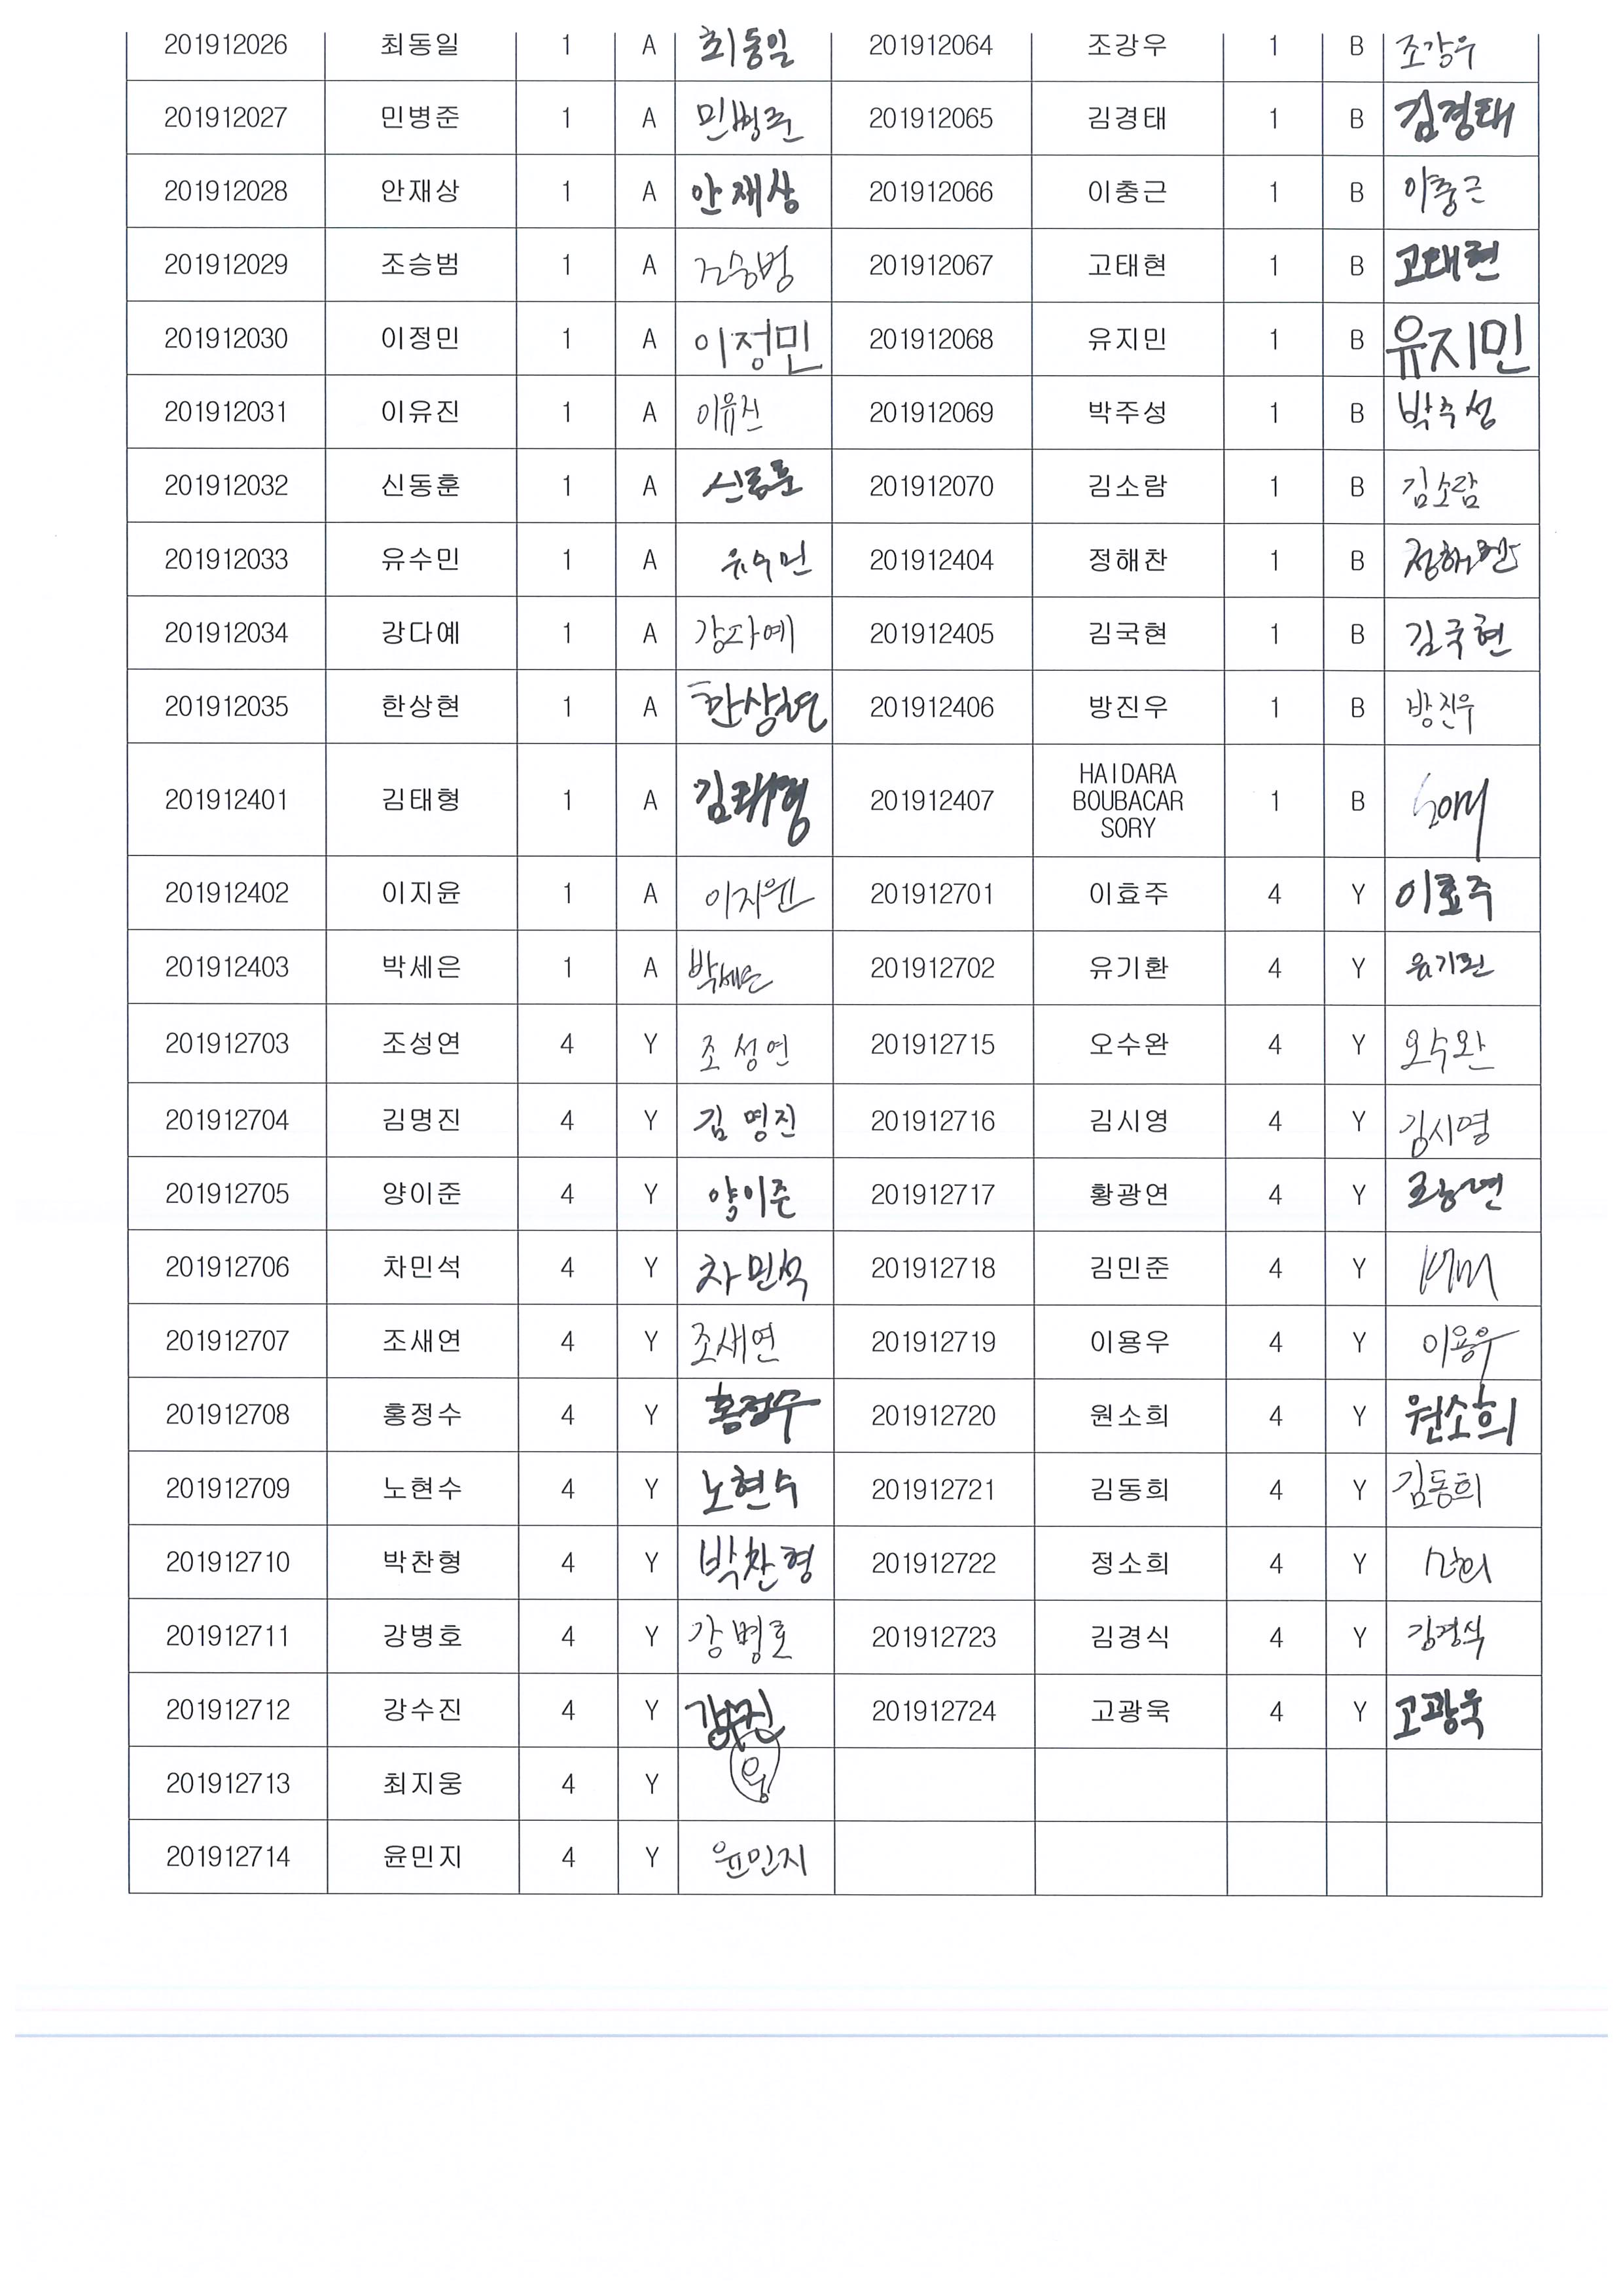 201912026 최동일 1 A 최동일 201912064 조강우 1 B 조강우
201912027 민병준 1 A 민병준 201912065 김경태 1 B 김경태
201912028 안재상 1 A 안재상 201912066 이충근 1 B 이충근
201912029 조승범 1 A 조승범 201912067 고태현 1 B 고태현
201912030 이정민 1 A 이정민 201912068 유지민 1 B 유지민
201912031 이유진 1 A 이유진 201912069 박주성 1 B 박주성
201912032 신동훈 1 A 신동훈 201912070 김소람 1 B 김소람
201912033 유수민 1 A 유수민 201912404 정해찬 1 B 정해찬
201912034 강다예 1 A 강다예 201912405 김국현 1 B 김국현
201912035 한상현 1 A 한상현 201912406 방진우 1 B 방진우
201912401 김태형 1 A 김태형 201912407 HAIDARA BOUBACAR SORY 1 B
201912402 이지윤 1 A 이지윤 201912701 이효주 4 Y 이효주
201912403 박세은 1 A 박세은 201912702 유기환 4 Y 유기환
201912703 조성연 4 Y 조성연 201912715 오수완 4 Y 오수완
201912704 김명진 4 Y 김명진 201912716 김시영 4 Y 김시영
201912705 양이준 4 Y 양이준 201912717 황광연 4 Y
201912706 차민석 4 Y 차민석 201912718 김민준 4 Y
201912707 조새연 4 Y 조새연 201912719 이용우 4 Y 이용우
201912708 홍정수 4 Y 홍정수 201912720 원소희 4 Y 원소희
201912709 노현수 4 Y 노현수 201912721 김동희 4 Y 김동희
201912710 박찬형 4 Y 박찬형 201912722 정소희 4 Y
201912711 강병호 4 Y 강병호 201912723 김경식 4 Y 김경식
201912712 강수진 4 Y 강수진 201912724 고광욱 4 Y 고광욱
201912713 최지웅 4 Y 웅
201912714 윤민지 4 Y 윤민지